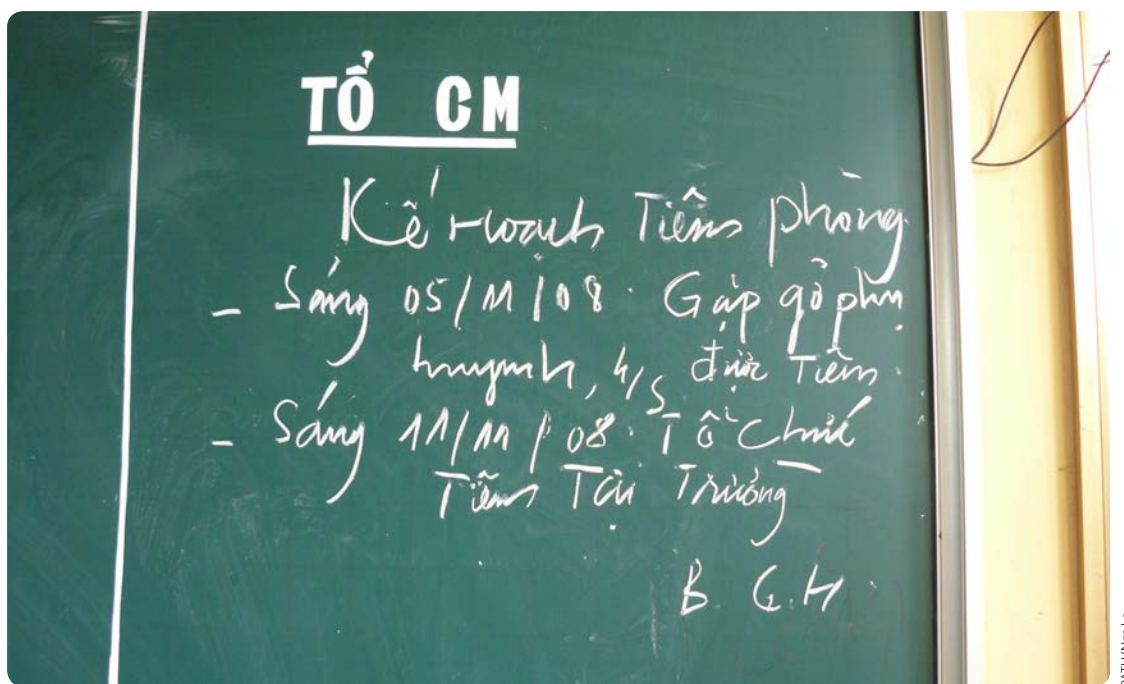 TỔ CM
Kế Hoạch Tiêm phòng
- Sáng 05/11/08. Gặp gỡ phụ
huynh, h/s được Tiêm.
- Sáng 11/11/08. Tổ chức
Tiêm Tại Trường
B. G. H.
PATH/